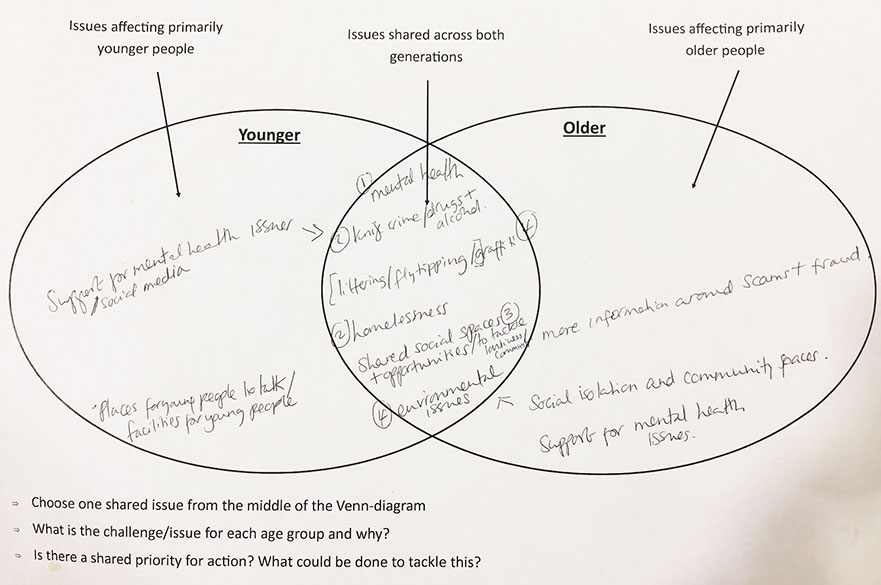 Issues affecting primarily
younger people
Issues shared across both
generations
Issues affecting primarily
older people
Younger
Older
Support for mental health issues
/social media
• Places for young people to talk/
facilities for young people
① mental health
② knife crime/drugs +
alcohol.
[littering/flytipping/graffiti] ④
② homelessness
Shared social spaces ③
+ opportunities/to tackle
loneliness/
④ environmental
issues
more information around scams + fraud.
Social isolation and community spaces.
Support for mental health
issues.
⇒ Choose one shared issue from the middle of the Venn-diagram
⇒ What is the challenge/issue for each age group and why?
⇒ Is there a shared priority for action? What could be done to tackle this?